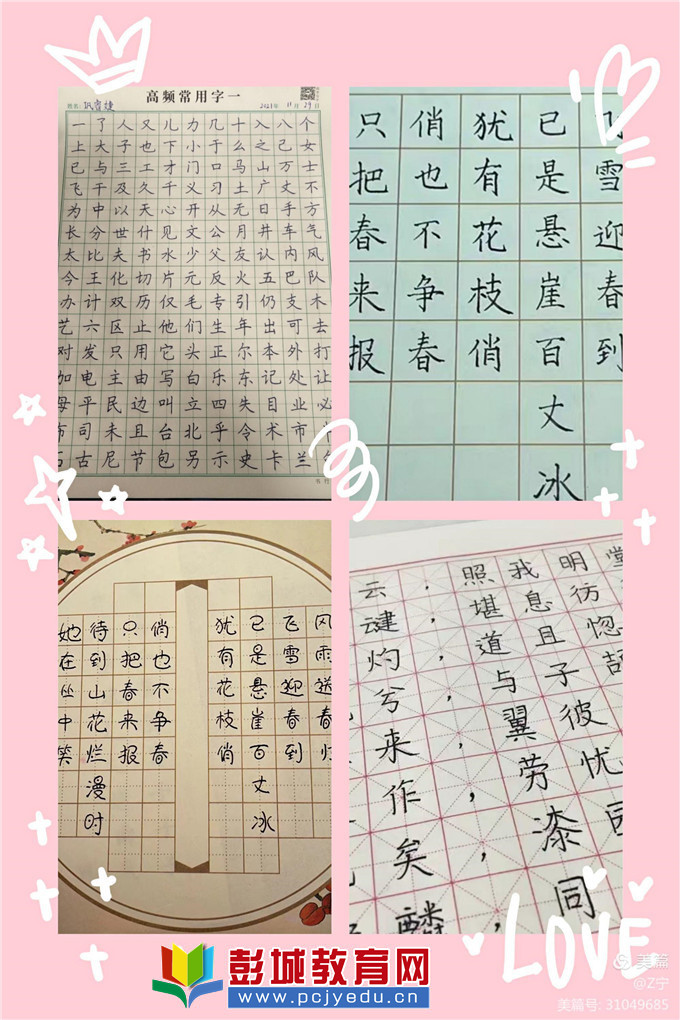 高频常用字一
姓名:
2021年 11月29日
一了人又儿力几十入八个
上大子也下小于么之己女
已与三工才门口马山万士
飞干及久千义习土广丈不
为中以天心开从无日手方
长分世什见文公月井车气
太比夫书水少父友认内风
今王化切片元反火五巴队
办计双历仅毛专引仍支木
艺六区止他们生年出可去
对发只用它头正尔本外打
加电主由写白乐东记处让
母平民边叫立四失目业必
布司未且台北乎令术市
石古尼节包另示史卡兰
雪迎春到
已是悬崖百丈冰
犹有花枝俏
俏也不争春
只把春来报
风雨送春归
飞雪迎春到
已是悬崖百丈冰
犹有花枝俏
俏也不争春
只把春来报
待到山花烂漫时
她在丛中笑
堂
明彷惚
我息且子彼忧
照堪道与翼劳漆同
云灼兮来作矣麟
LOVE
彭城教育网
www.pcjyedu.cn
美篇
@Z宁
美篇号: 31049685